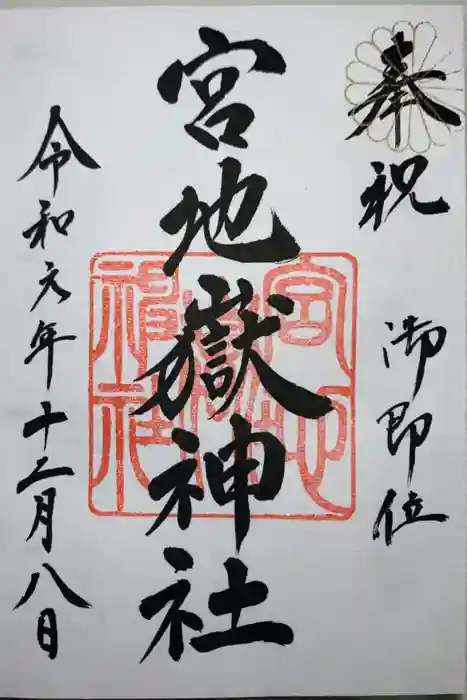 奉祝 御即位
宮地嶽神社
令和元年十二月八日
宮地嶽神社